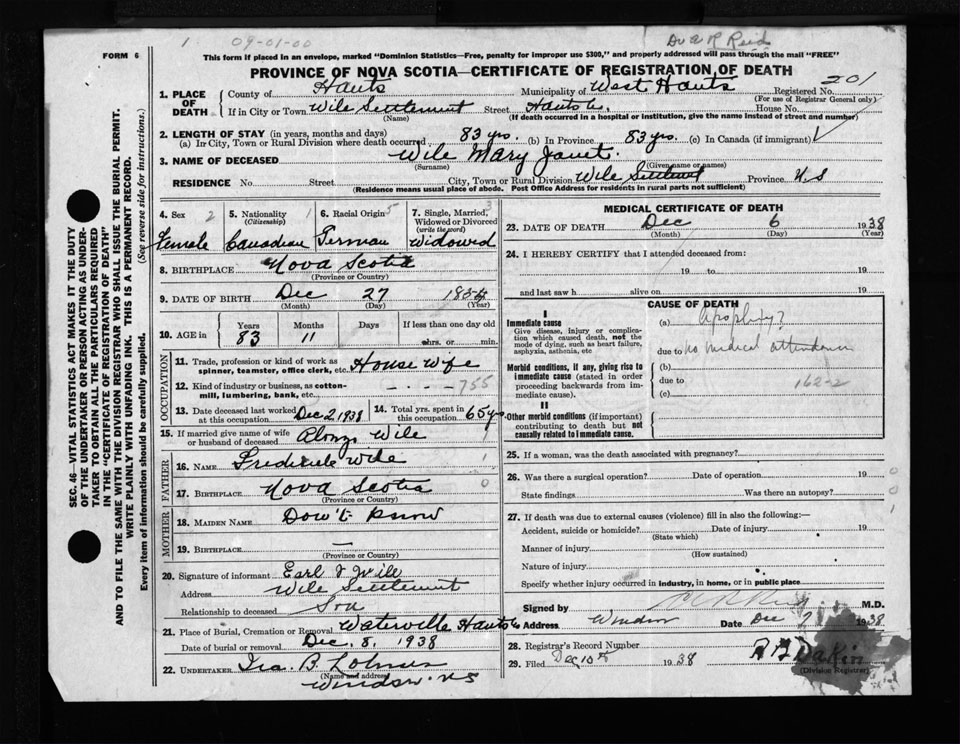 1 09-01-00 Dr A R Reid
FORM 6
This form if placed in an envelope, marked "Dominion Statistics—Free, penalty for improper use $300," and properly addressed will pass through the mail "FREE"
PROVINCE OF NOVA SCOTIA—CERTIFICATE OF REGISTRATION OF DEATH
1. PLACE OF DEATH County of Hants Municipality of West Hants Registered No. 201
(For use of Registrar General only)
If in City or Town Wile Settlement Street Hants Co. House No.
(Name) (If death occurred in a hospital or institution, give the name instead of street and number)
2. LENGTH OF STAY (in years, months and days)
(a) In City, Town or Rural Division where death occurred 83 yrs. (b) In Province 83 yrs. (c) In Canada (if immigrant)
3. NAME OF DECEASED Wile Mary Janet.
(Surname) (Given name or names)
RESIDENCE No. Street City, Town or Rural Division Wile Settlement Province N.S
(Residence means usual place of abode. Post Office Address for residents in rural parts not sufficient)
SEC. 46—VITAL STATISTICS ACT MAKES IT THE DUTY
OF THE UNDERTAKER OR PERSON ACTING AS UNDER-
TAKER TO OBTAIN ALL THE PARTICULARS REQUIRED
IN THE "CERTIFICATE OF REGISTRATION OF DEATH"
AND TO FILE THE SAME WITH THE DIVISION REGISTRAR WHO SHALL ISSUE THE BURIAL PERMIT.
WRITE PLAINLY WITH UNFADING INK. THIS IS A PERMANENT RECORD.
Every item of information should be carefully supplied. (See reverse side for instructions.)
4. Sex 2 Female
5. Nationality (Citizenship) 1 Canadian
6. Racial Origin 5 German
7. Single, Married, Widowed or Divorced (write the word) 3 Widowed
8. BIRTHPLACE Nova Scotia
(Province or Country)
9. DATE OF BIRTH Dec 27 1854
(Month) (Day) (Year)
10. AGE in Years 83 Months 11 Days If less than one day
hrs. or min.
OCCUPATION
11. Trade, profession or kind of work as spinner, teamster, office clerk, etc. House Wife
12. Kind of industry or business, as cotton-mill, lumbering, bank, etc. - - - - 755
13. Date deceased last worked at this occupation Dec 2, 1938
14. Total yrs. spent in this occupation 65 yrs
15. If married give name of wife or husband of deceased Alonzo Wile
FATHER
16. NAME Frederick Wile 1
17. BIRTHPLACE Nova Scotia 0
(Province or Country)
MOTHER
18. MAIDEN NAME Don't Know
19. BIRTHPLACE —
(Province or Country)
20. Signature of informant Earl I Wile
Address Wile Settlement
Relationship to deceased Son
21. Place of Burial, Cremation or Removal Waterville Hants Co
Date of burial or removal Dec. 8, 1938
22. UNDERTAKER Ira. B. Lohnes
(Name and address)
Windsor NS
MEDICAL CERTIFICATE OF DEATH
23. DATE OF DEATH Dec 6 1938
(Month) (Day) (Year)
24. I HEREBY CERTIFY that I attended deceased from:
19 to 19
and last saw h alive on 19
CAUSE OF DEATH
I
Immediate cause
Give disease, injury or complication which caused death, not the mode of dying, such as heart failure, asphyxia, asthenia, etc
(a)
due to no medical attendance
Morbid conditions, if any, giving rise to immediate cause (stated in order proceeding backwards from immediate cause).
(b)
due to 162-2
(c)
II
Other morbid conditions (if important) contributing to death but not causally related to immediate cause.
25. If a woman, was the death associated with pregnancy?
26. Was there a surgical operation? Date of operation 0
State findings Was there an autopsy? 0
27. If death was due to external causes (violence) fill in also the following:— 1
Accident, suicide or homicide? Date of injury 19
(State which)
Manner of injury
(How sustained)
Nature of injury
Specify whether injury occurred in industry, in home, or in public place
Signed by M.D.
Address Windsor Date Dec 7 1938
28. Registrar's Record Number
29. Filed Dec 10th 1938 Dakin
(Division Registrar)